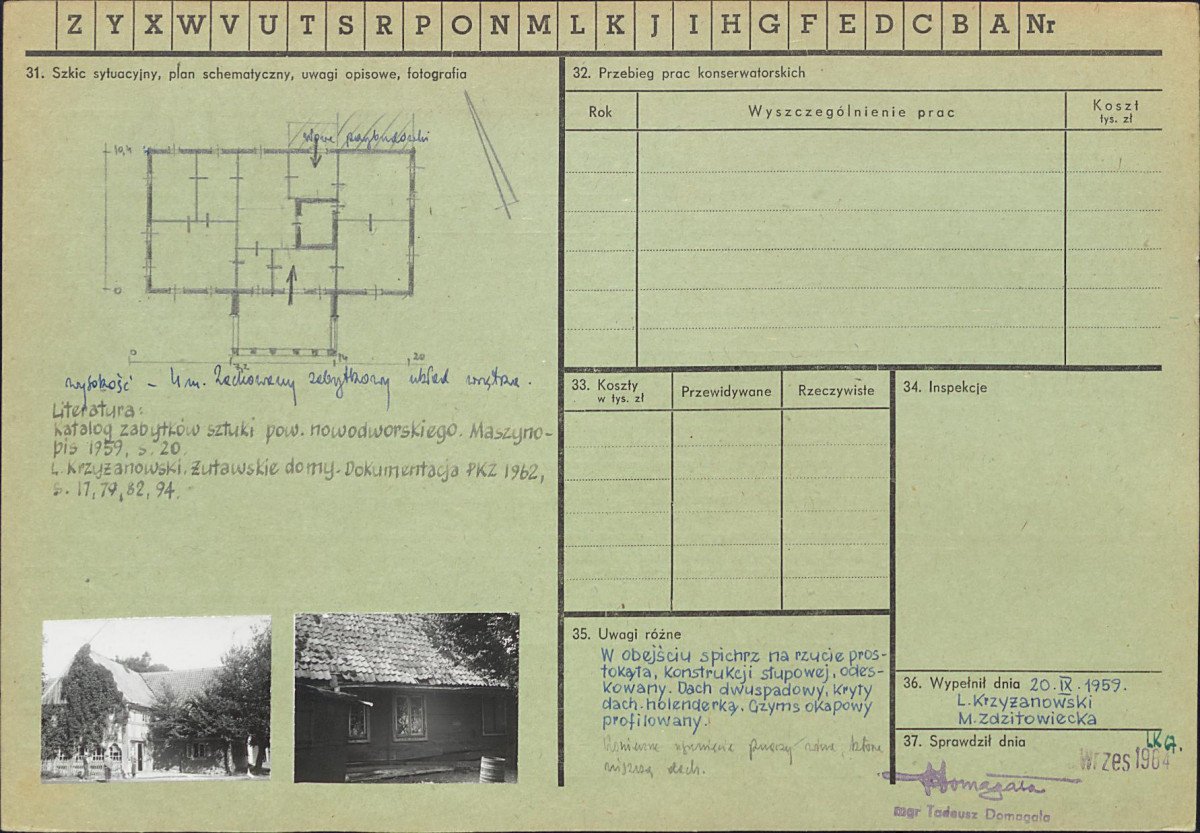 Z Y X W V U T S R P O N M L K J I H G F E D C B A Nr
31. Szkic sytuacyjny, plan schematyczny, uwagi opisowe, fotografia
nowe przybudówki
10,4
0
0
14
20
wysokość – 4 m. Zachowany zabytkowy układ wnętrza.
Literatura:
Katalog zabytków sztuki pow. nowodworskiego. Maszyno-
pis 1959, s. 20.
L. Krzyżanowski. Żuławskie domy. Dokumentacja PKZ 1962,
s. 17, 79, 82, 94.
32. Przebieg prac konserwatorskich
Rok
Wyszczególnienie prac
Koszt
tys. zł
33. Koszty
w tys. zł
Przewidywane
Rzeczywiste
34. Inspekcje
35. Uwagi różne
W obejściu spichrz na rzucie pros-
tokąta, konstrukcji słupowej, odes-
kowany. Dach dwuspadowy, kryty
dach. holenderką. Gzyms okapowy
profilowany.
Konieczne usunięcie które
niszczą dach.
36. Wypełnił dnia 20. IX. 1959.
L. Krzyżanowski
M. Zdziłowiecka
37. Sprawdził dnia
wrzes 1964
Domagała
mgr Tadeusz Domagała